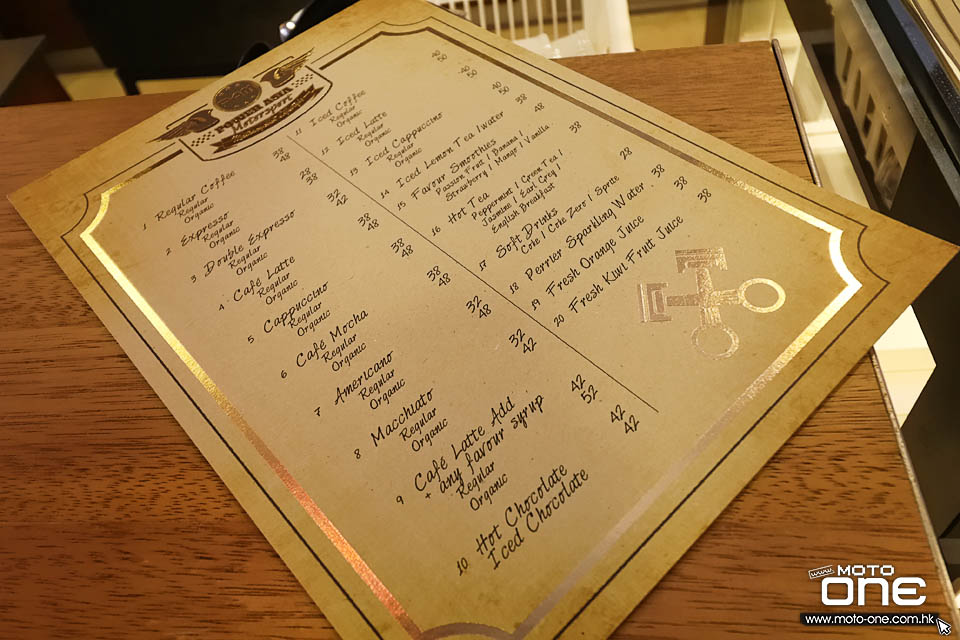 POWER ASIA
Motorsport
1 Regular Coffee
Regular 38
Organic 48
2 Expresso
Regular 28
Organic 38
3 Double Expresso
Regular 32
Organic 42
4 Café Latte
Regular 38
Organic 48
5 Cappuccino
Regular 38
Organic 48
6 Café Mocha
Regular 38
Organic 48
7 Americano
Regular 32
Organic 48
8 Macchiato
Regular 32
Organic 42
9 Café Latte Add
+ any favour syrup
Regular 42
Organic 52
10 Hot Chocolate 42
Iced Chocolate 42
11 Iced Coffee
Regular 40
Organic 50
12 Iced Latte
Regular 40
Organic 50
13 Iced Cappuccino
Regular 40
Organic 50
14 Iced Lemon Tea / water 38
15 Favour Smoothies 48
Passion Fruit / Banana /
Strawberry / Mango / Vanilla
16 Hot Tea 38
Peppermint / Green Tea /
Jasmine / Earl Grey /
English Breakfast
17 Soft Drinks 28
Coke / Coke Zero / Sprite
18 Perrier Sparkling Water 38
19 Fresh Orange Juice 38
20 Fresh Kiwi Fruit Juice 38
www MOTO
ONE
www.moto-one.com.hk